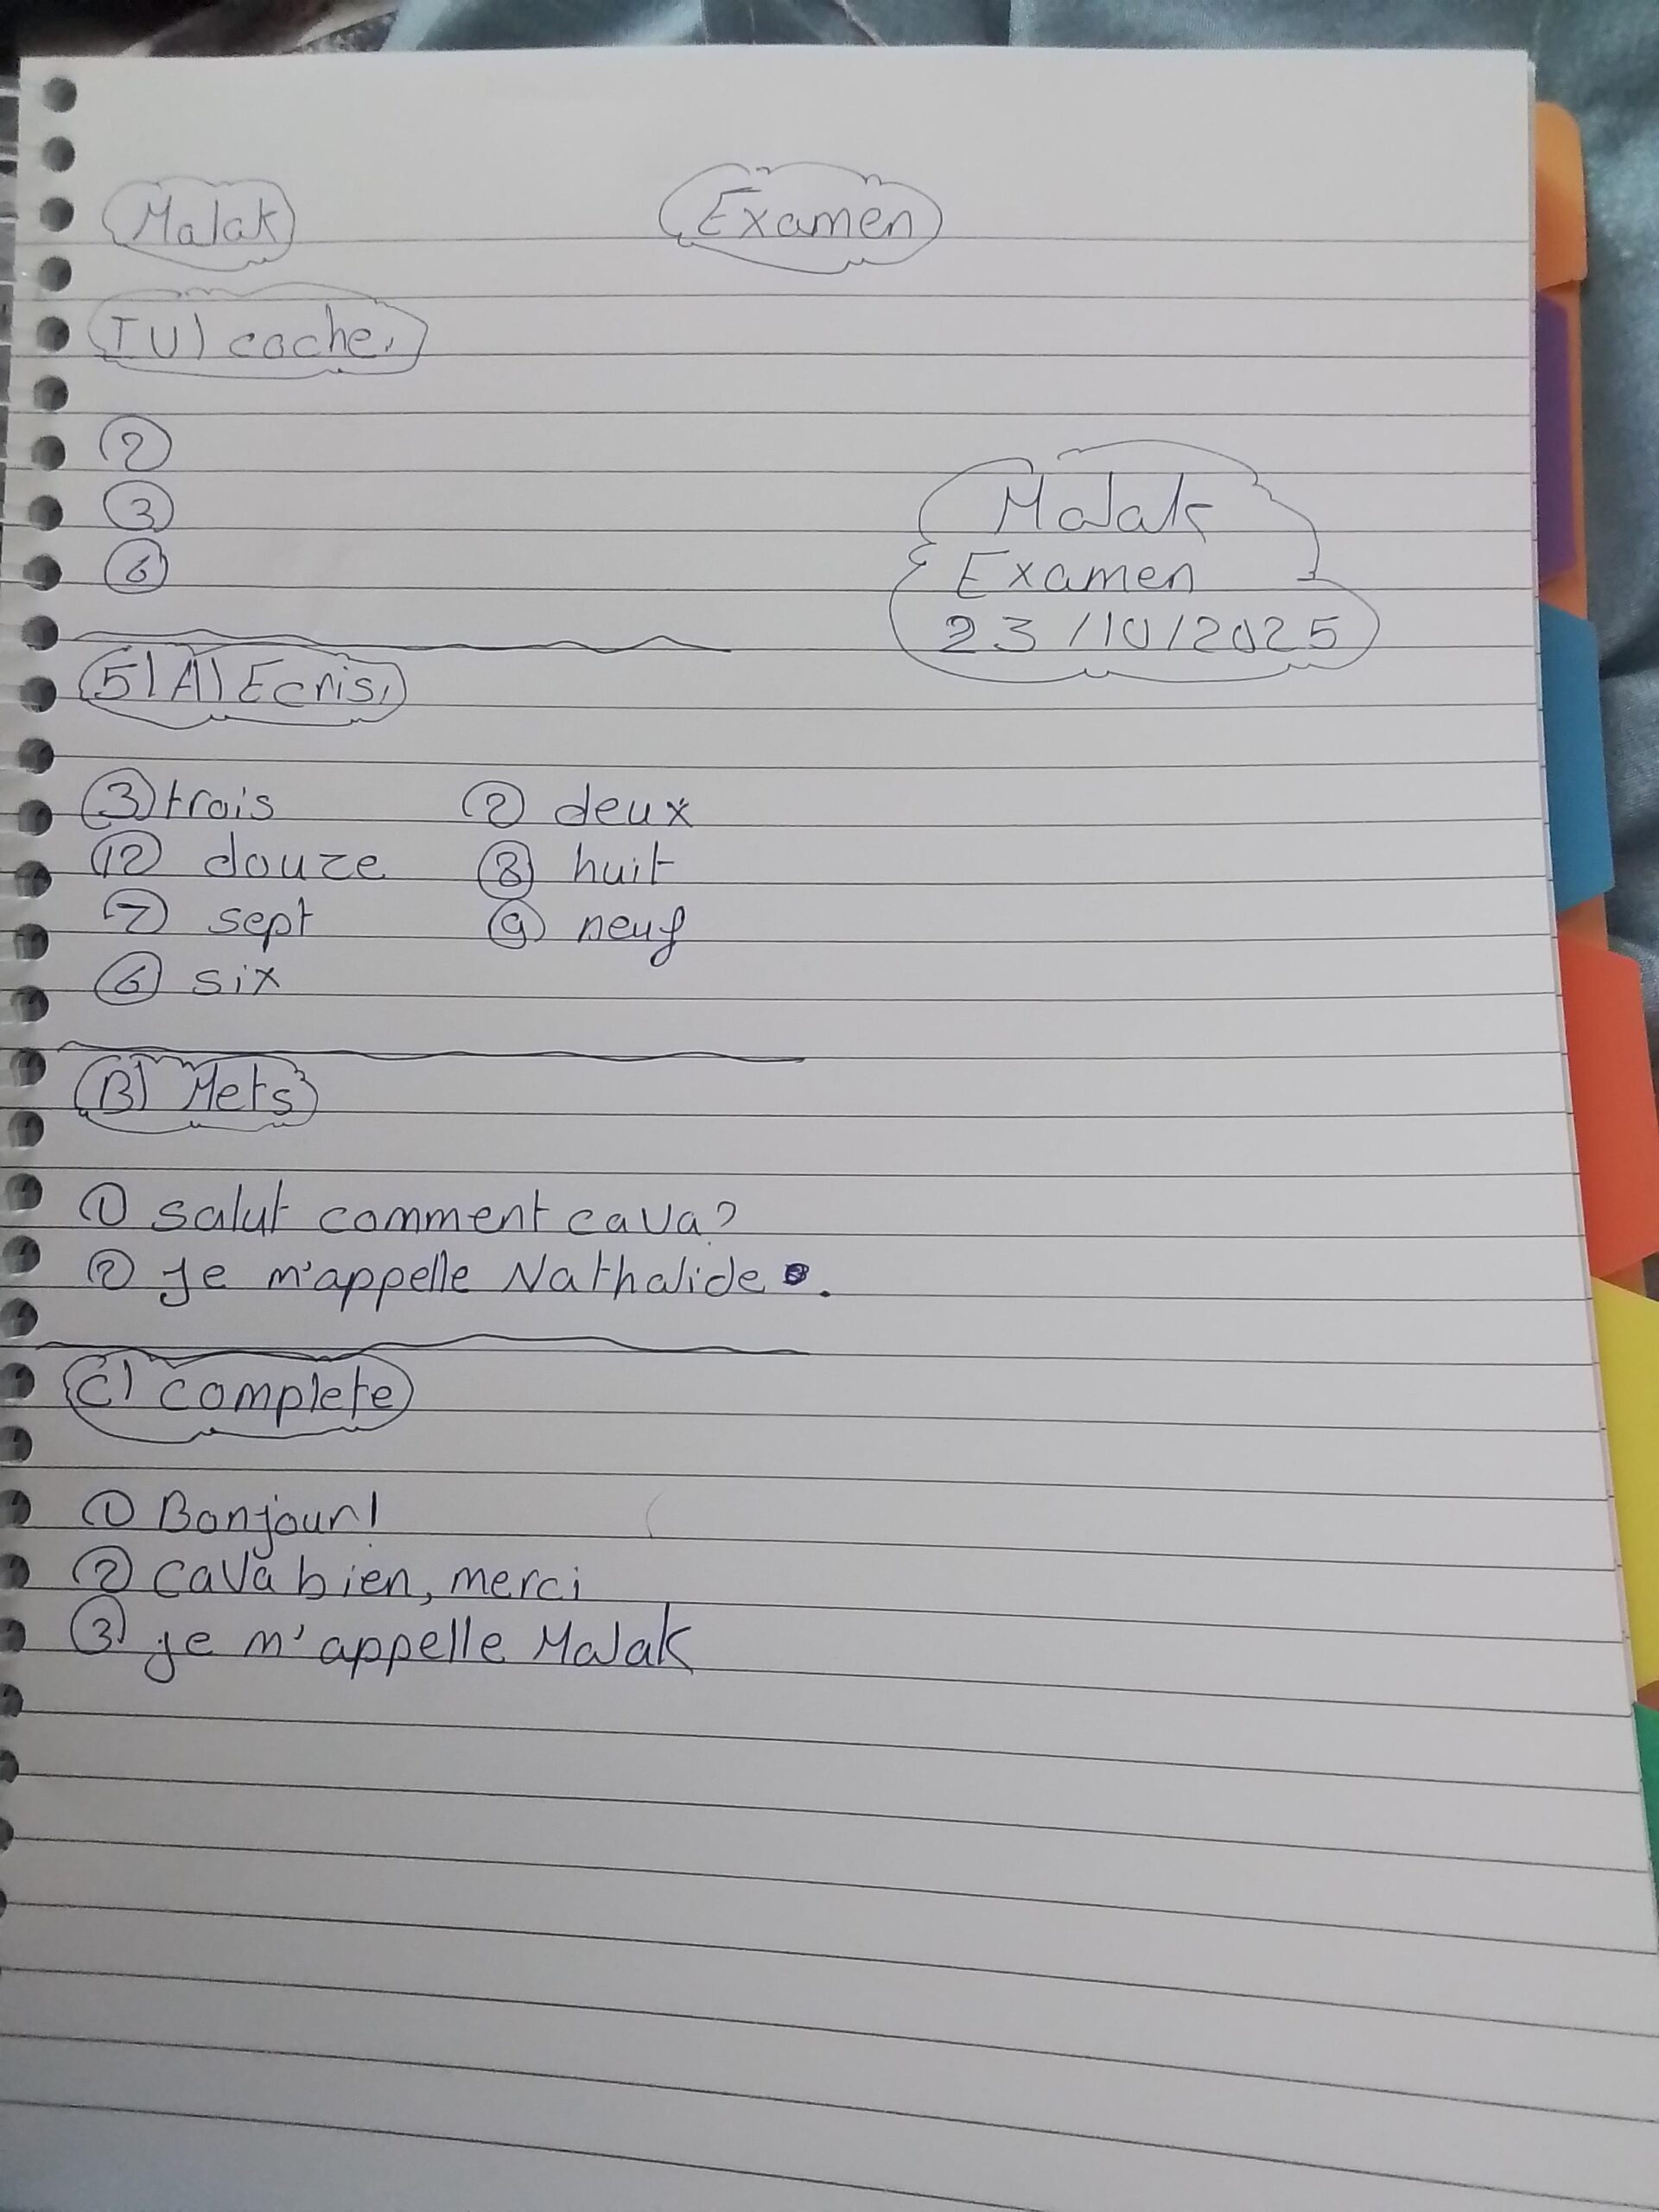 Malak Examen
IV) coche,
2
3
6
Malak
Examen
23/10/2025
5) A) Ecris,
3 trois 2 deux
12 douze 8 huit
7 sept 9 neuf
6 six
B) Mets
1 salut comment cava?
2 je m'appelle Nathalide.
C) complete
1 Bonjour!
2 cava bien, merci
3 je m'appelle Malak